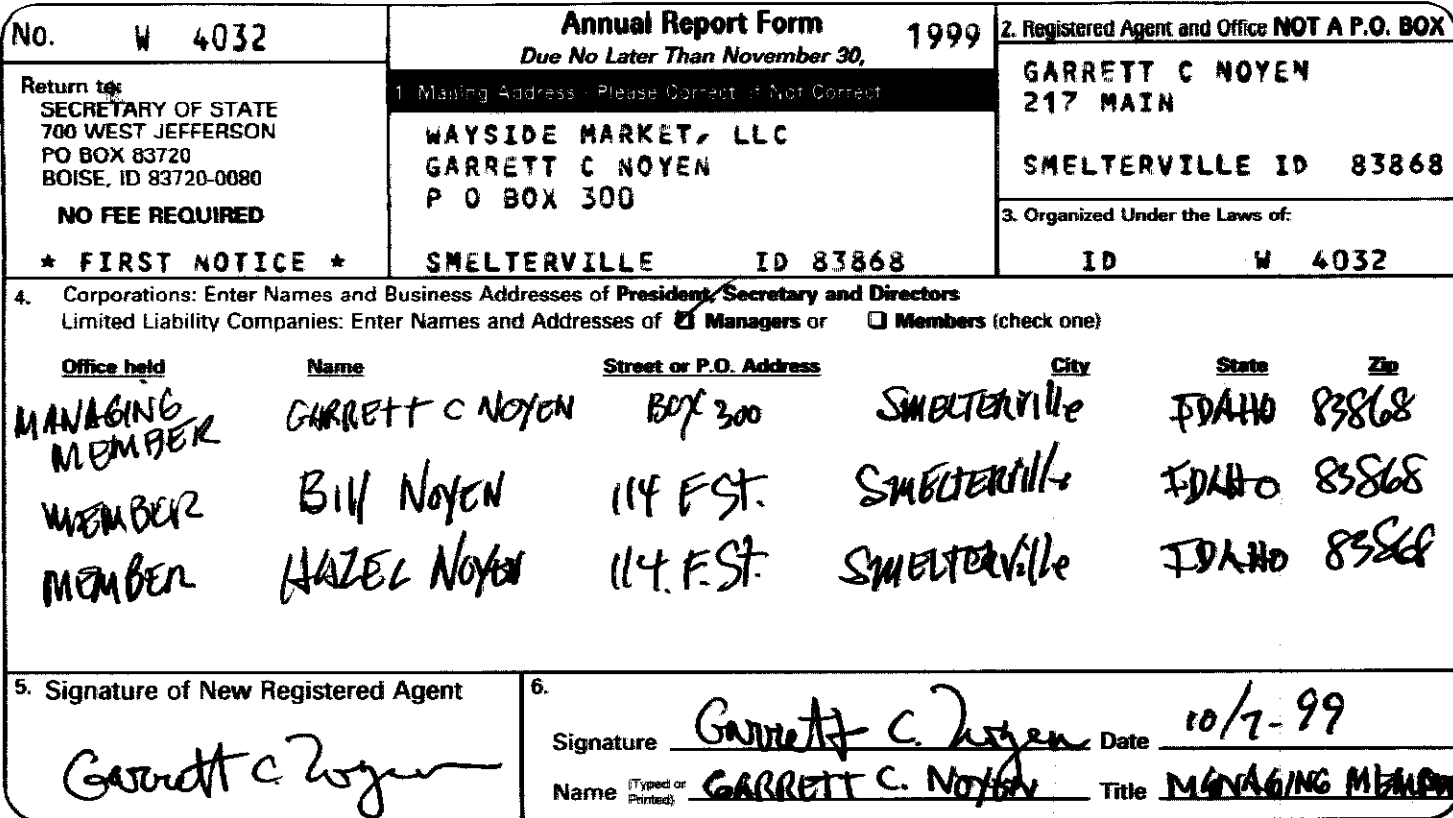 No. W 4032
Annual Report Form 1999
Due No Later Than November 30,
Return to:
SECRETARY OF STATE
700 WEST JEFFERSON
PO BOX 83720
BOISE, ID 83720-0080
NO FEE REQUIRED
* FIRST NOTICE *
1. Mailing Address - Please Correct if Not Correct
WAYSIDE MARKET, LLC
GARRETT C NOYEN
P O BOX 300
SMELTERVILLE ID 83868
2. Registered Agent and Office NOT A P.O. BOX
GARRETT C NOYEN
217 MAIN
SMELTERVILLE ID 83868
3. Organized Under the Laws of:
ID W 4032
4. Corporations: Enter Names and Business Addresses of President, Secretary and Directors
Limited Liability Companies: Enter Names and Addresses of ☑ Managers or ☐ Members (check one)
Office held Name Street or P.O. Address City State Zip
MANAGING MEMBER GARRETT C NOYEN BOX 300 SMELTERVIlle IDAHO 83868
MEMBER Bill NOYEN 114 F ST. SMELTERVIlle IDAHO 83868
MEMBER HAZEL NOYEN 114 F. ST. SMELTERVIlle IDAHO 83868
5. Signature of New Registered Agent
Garrett C Noyen
6.
Signature Garrett C. Noyen Date 10/7-99
Name (Typed or Printed) GARRETT C. NOYEN Title MANAGING MEMBER